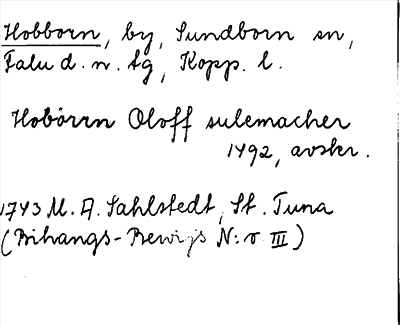 Hobborn, by, Sundborn sn,
Falu d. n. tg, Kopp. l.
Hobörrn Oloff sulemacher
1492, avskr.
1743 M. A. Sahlstedt, St. Tuna
(Bihangs-Bewijs N:o III)